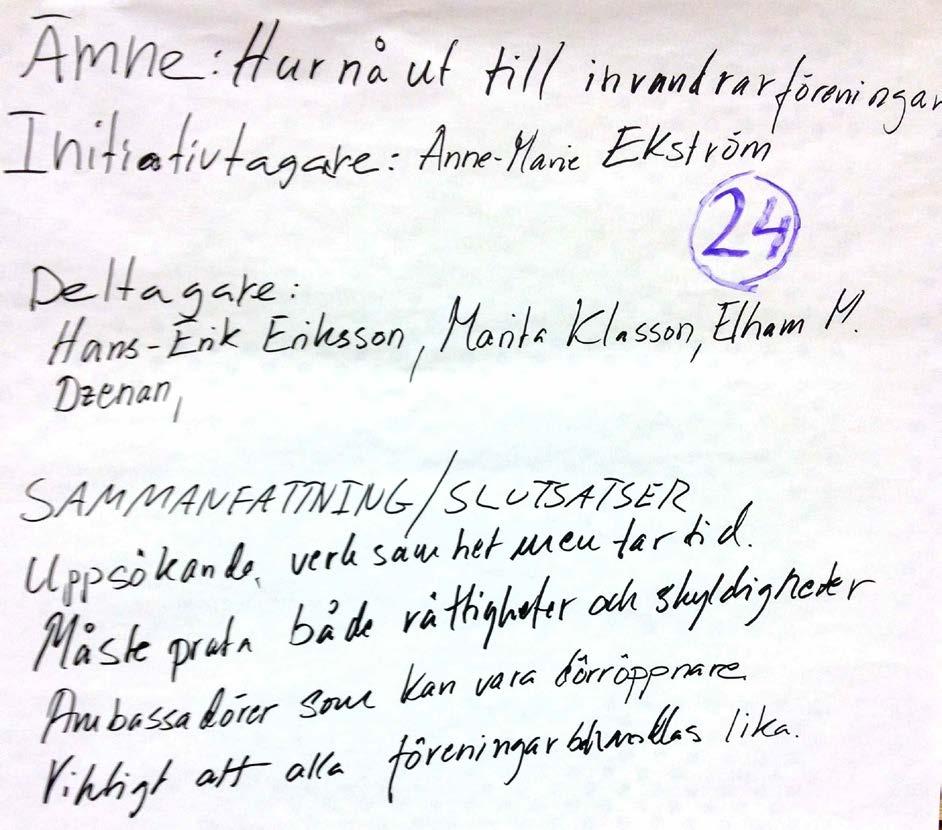 Ämne: Hur nå ut till invandrarföreningar
Initiativtagare: Anne-Marie Ekström
24
Deltagare:
Hans-Erik Eriksson, Marita Klasson, Elham M.
Dzenan,
SAMMANFATTNING/SLUTSATSER
Uppsökande verksamhet men tar tid.
Måste prata både rättigheter och skyldigheter
Ambassadörer som kan vara dörröppnare
Viktigt att alla föreningar behandlas lika.